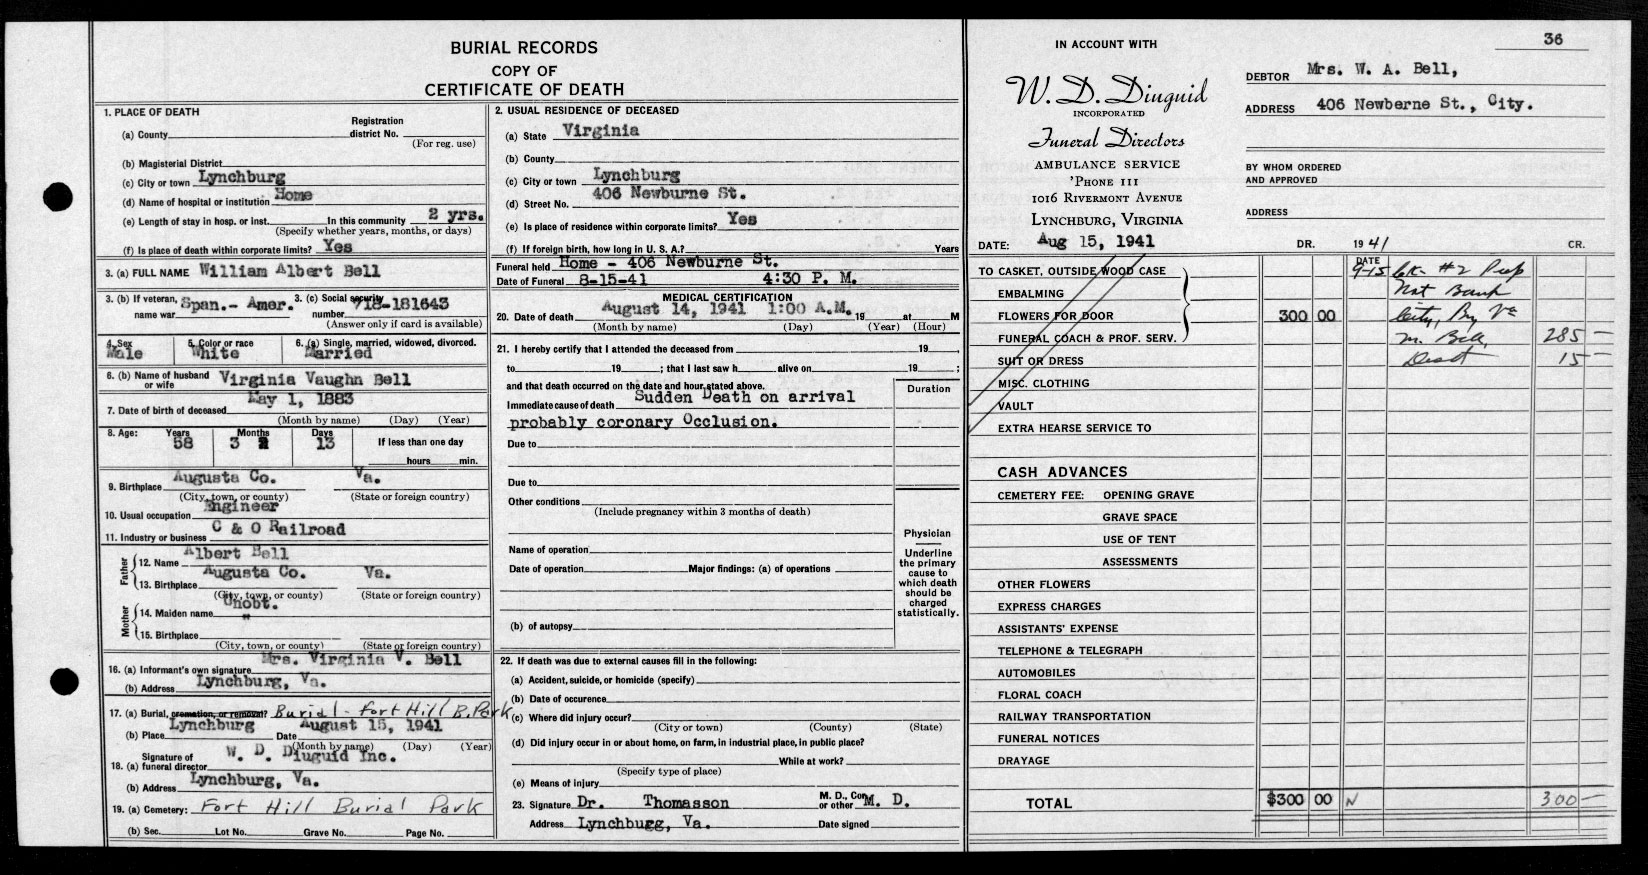 BURIAL RECORDS
COPY OF
CERTIFICATE OF DEATH
1. PLACE OF DEATH
Registration
(a) County district No.
(For reg. use)
(b) Magisterial District
(c) City or town Lynchburg
(d) Name of hospital or institution Home
(e) Length of stay in hosp. or inst. In this community 2 yrs.
(Specify whether years, months, or days)
(f) Is place of death within corporate limits? Yes
3. (a) FULL NAME William Albert Bell
3. (b) If veteran, name war Span.- Amer. 3. (c) Social security number 718-181643
(Answer only if card is available)
4. Sex Male 5. Color or race White 6. (a) Single, married, widowed, divorced. Married
6. (b) Name of husband or wife Virginia Vaughn Bell
7. Date of birth of deceased May 1, 1883
(Month by name) (Day) (Year)
8. Age: Years 58 Months 3 Days 13 If less than one day
hours min.
9. Birthplace Augusta Co. Va.
(City, town, or county) (State or foreign country)
10. Usual occupation Engineer
11. Industry or business C & O Railroad
Father
12. Name Albert Bell
13. Birthplace Augusta Co. Va.
(City, town, or county) (State or foreign country)
Mother
14. Maiden name Unobt.
15. Birthplace "
(City, town, or county) (State or foreign country)
16. (a) Informant's own signature Mrs. Virginia V. Bell
(b) Address Lynchburg, Va.
17. (a) Burial, cremation, or removal? Burial - Fort Hill B. Park
(b) Place Lynchburg Date August 15, 1941
(Month by name) (Day) (Year)
18. (a) Signature of funeral director W. D. Diuguid Inc.
(b) Address Lynchburg, Va.
19. (a) Cemetery: Fort Hill Burial Park
(b) Sec. Lot No. Grave No. Page No.
2. USUAL RESIDENCE OF DECEASED
(a) State Virginia
(b) County
(c) City or town Lynchburg
(d) Street No. 406 Newburne St.
(e) Is place of residence within corporate limits? Yes
(f) If foreign birth, how long in U. S. A.? Years
Funeral held Home - 406 Newburne St.
Date of Funeral 8-15-41 4:30 P. M.
MEDICAL CERTIFICATION
20. Date of death August 14, 1941 1:00 A.M. 19 at M
(Month by name) (Day) (Year) (Hour)
21. I hereby certify that I attended the deceased from 19 ,
to 19 ; that I last saw h alive on 19 ;
and that death occurred on the date and hour stated above. Duration
Immediate cause of death Sudden Death on arrival
probably coronary Occlusion.
Due to
Due to
Other conditions
(Include pregnancy within 3 months of death)
Physician
Underline
the primary
cause to
which death
should be
charged
statistically.
Name of operation
Date of operation Major findings: (a) of operations
(b) of autopsy
22. If death was due to external causes fill in the following:
(a) Accident, suicide, or homicide (specify)
(b) Date of occurence
(c) Where did injury occur?
(City or town) (County) (State)
(d) Did injury occur in or about home, on farm, in industrial place, in public place?
While at work?
(Specify type of place)
(e) Means of injury
23. Signature Dr. Thomasson M. D., Cor. or other M. D.
Address Lynchburg, Va. Date signed
36
IN ACCOUNT WITH
W. D. Diuguid
INCORPORATED
Funeral Directors
AMBULANCE SERVICE
'PHONE 111
1016 RIVERMONT AVENUE
LYNCHBURG, VIRGINIA
DEBTOR Mrs. W. A. Bell,
ADDRESS 406 Newberne St., City.
BY WHOM ORDERED
AND APPROVED
ADDRESS
DATE: Aug 15, 1941 DR. 1941 CR.
DATE
TO CASKET, OUTSIDE WOOD CASE 9-15 Ck. #2 Peop
EMBALMING Nat Bank
FLOWERS FOR DOOR 300 00 City, By Va
FUNERAL COACH & PROF. SERV. M. Bell, 285 —
SUIT OR DRESS Disct 15 —
MISC. CLOTHING
VAULT
EXTRA HEARSE SERVICE TO
CASH ADVANCES
CEMETERY FEE: OPENING GRAVE
GRAVE SPACE
USE OF TENT
ASSESSMENTS
OTHER FLOWERS
EXPRESS CHARGES
ASSISTANTS' EXPENSE
TELEPHONE & TELEGRAPH
AUTOMOBILES
FLORAL COACH
RAILWAY TRANSPORTATION
FUNERAL NOTICES
DRAYAGE
TOTAL $300 00 N 300 —